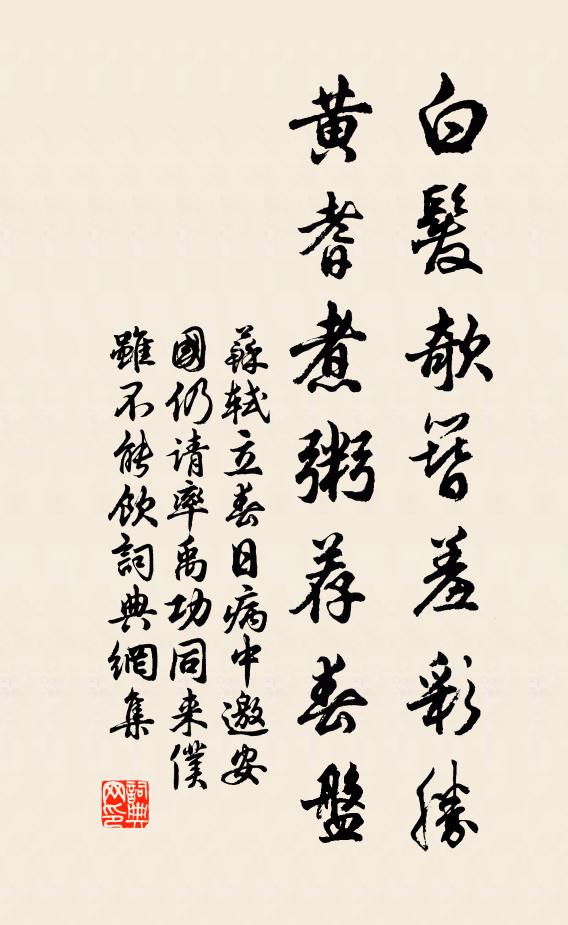 白髮欹簪羞彩勝
黃耆煮粥荐春盤
蘇軾立春日病中邀安
國仍请率禹功同来僕
雖不能飲詞典網集
詞典网印